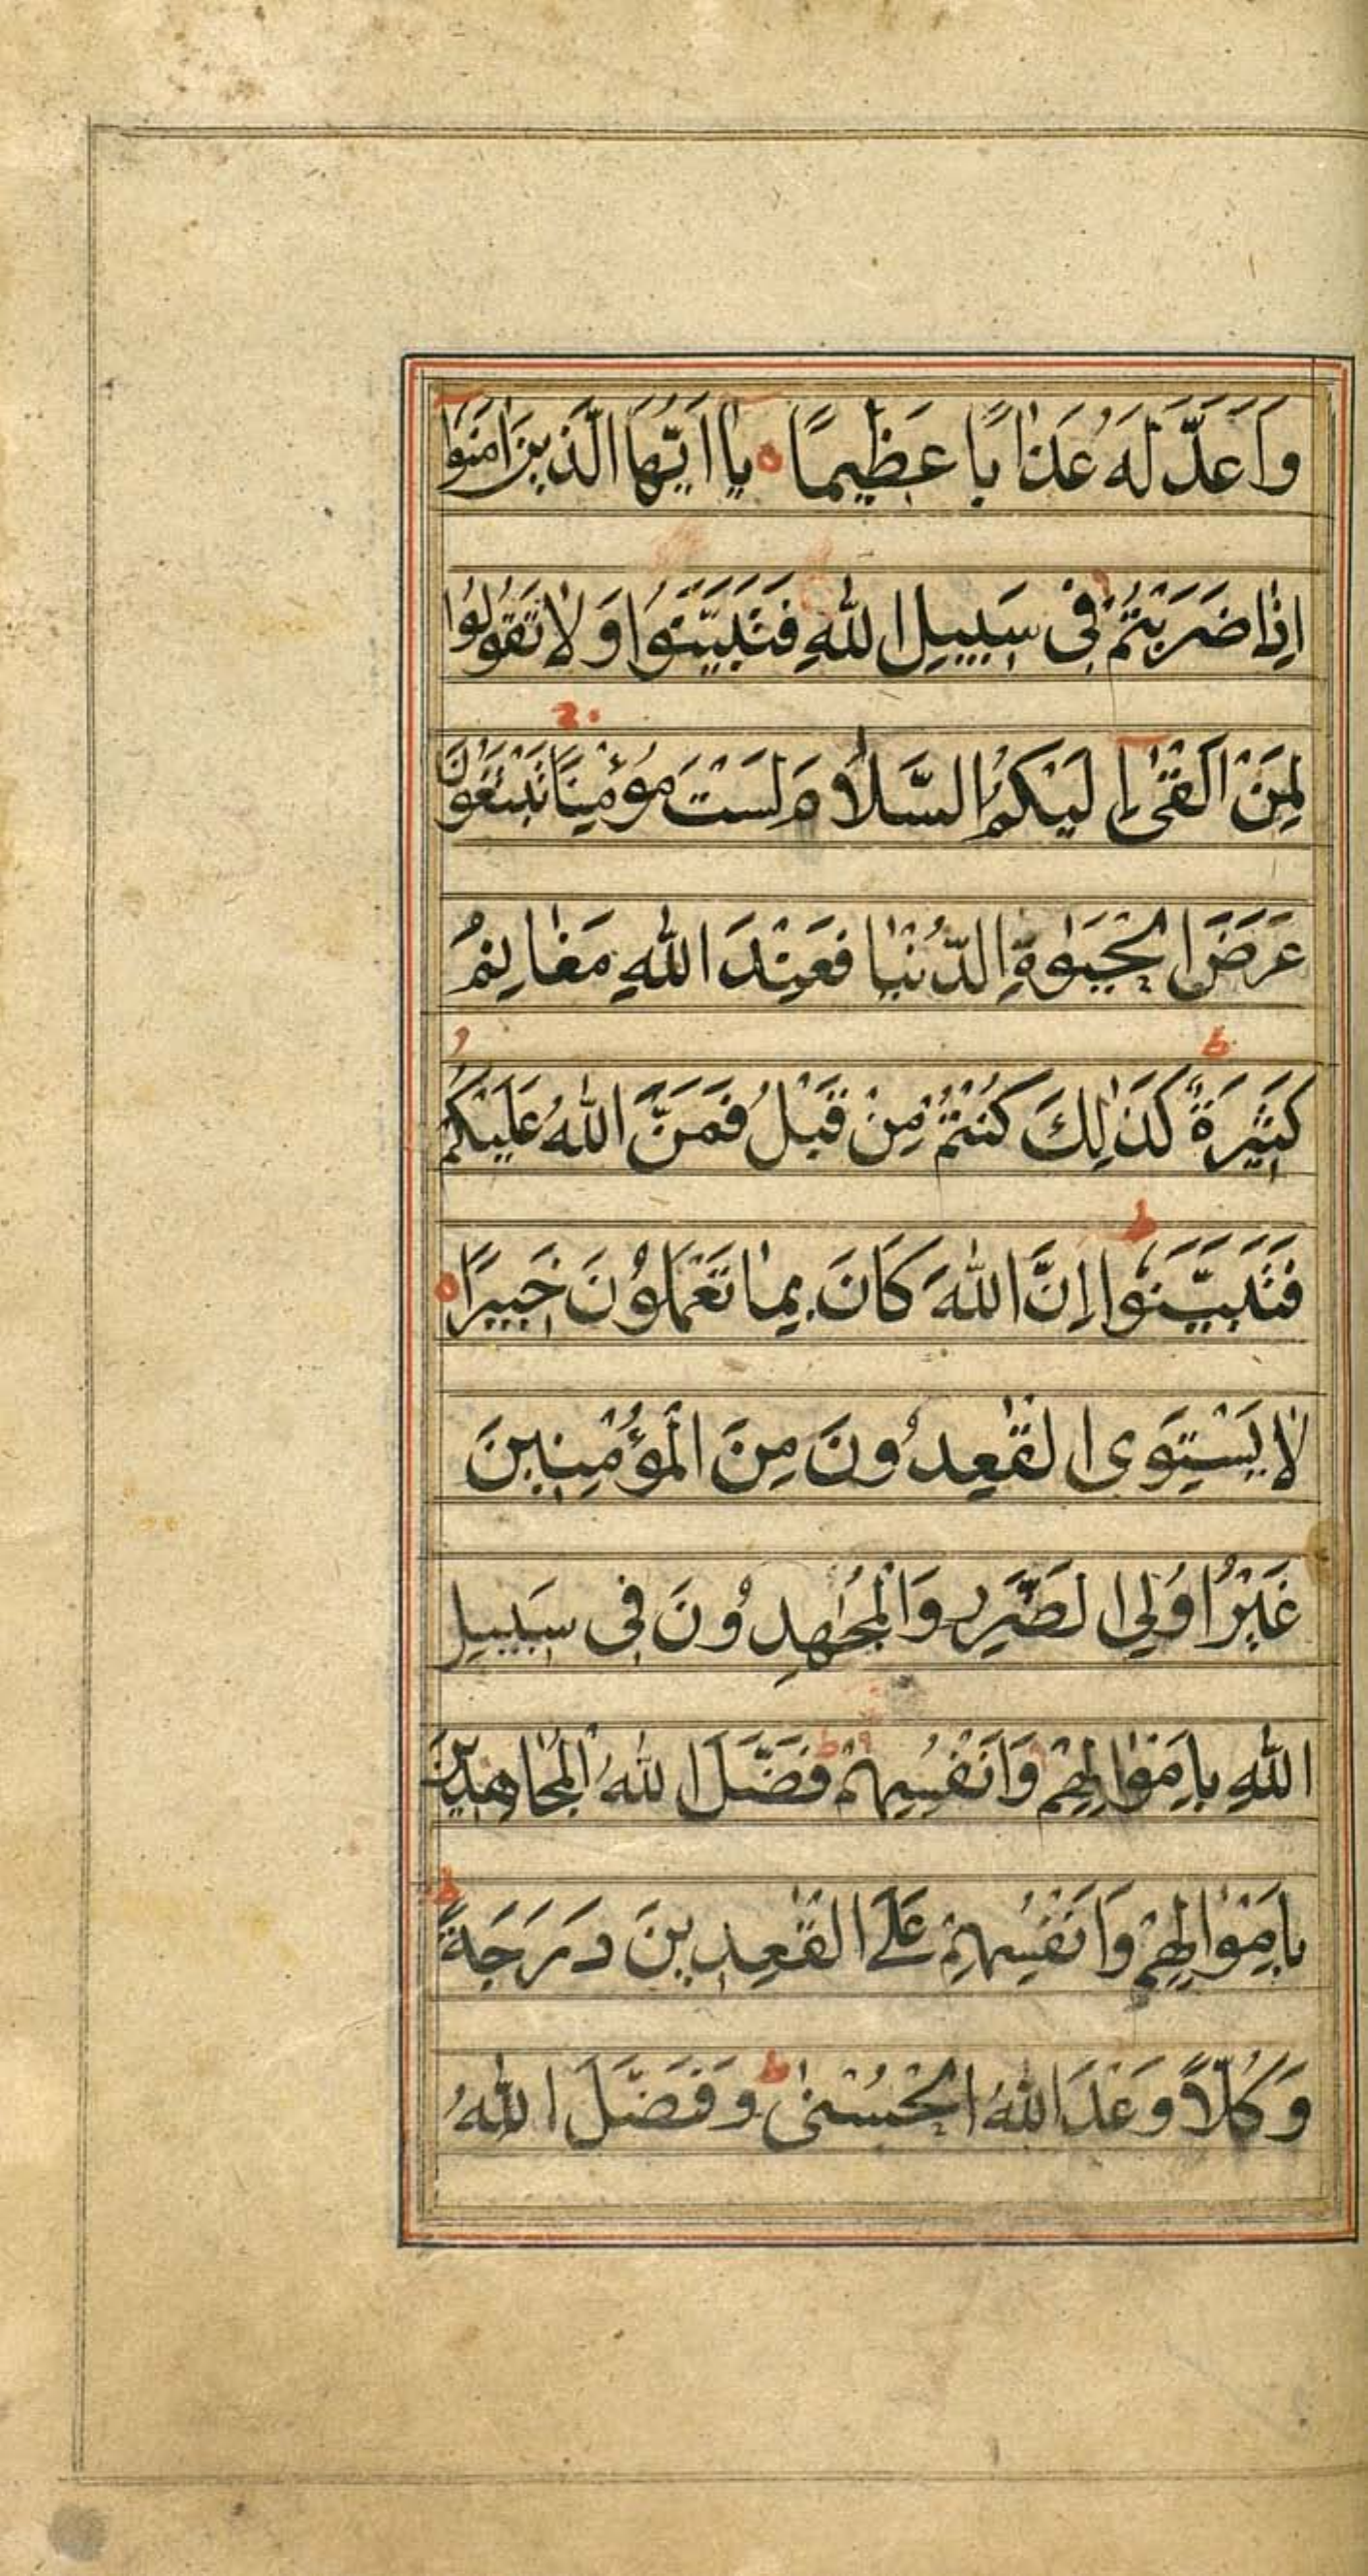 وَاَعَدَّ لَهُ عَذَابًا عَظِيمًا ه يٰا اَيُّهَا الَّذِينَ اٰمَنُوا
اِذٰا ضَرَبْتُمْ فِي سَبِيلِ اللّٰهِ فَتَبَيَّنُوا وَ لٰا تَقُولُوا
لِمَنْ اَلْقٰى اِلَيْكُمُ السَّلَامَ لَسْتَ مُؤْمِنًا تَبْتَغُونَ
عَرَضَ الْحَيٰوةِ الدُّنْيٰا فَعِنْدَ اللّٰهِ مَغٰانِمُ
كَثِيرَةٌ كَذٰلِكَ كُنْتُمْ مِنْ قَبْلُ فَمَنَّ اللّٰهُ عَلَيْكُمْ
فَتَبَيَّنُوا اِنَّ اللّٰهَ كَانَ بِمٰا تَعْمَلُونَ خَبِيرًا ه
لٰا يَسْتَوِى الْقٰعِدُونَ مِنَ الْمُؤْمِنِينَ
غَيْرُ اُولِي الضَّرَرِ وَالْمُجٰهِدُونَ فِي سَبِيلِ
اللّٰهِ بِاَمْوٰالِهِمْ وَاَنْفُسِهِمْ فَضَّلَ اللّٰهُ الْمُجٰاهِدِينَ
بِاَمْوٰالِهِمْ وَاَنْفُسِهِمْ عَلَى الْقٰعِدِينَ دَرَجَةً
وَكُلًّا وَعَدَ اللّٰهُ الْحُسْنٰى وَفَضَّلَ اللّٰهُ